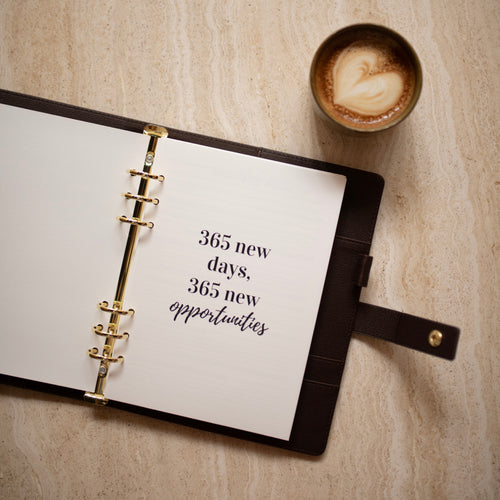 365 new
days,
365 new
opportunities